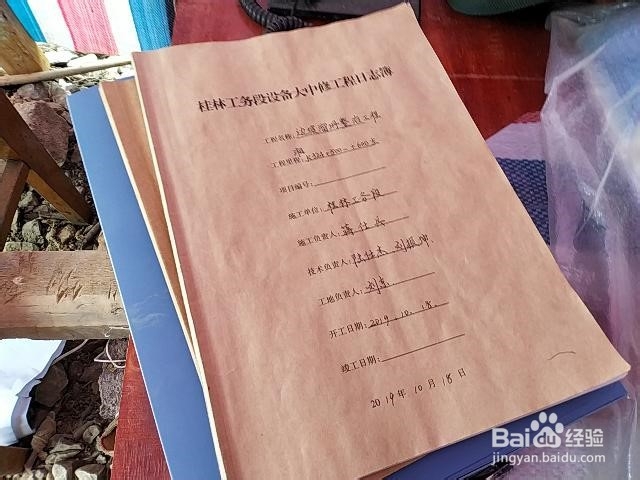 桂林工务段设备大中修工程日志簿
工程名称:边坡溜坍整治工程
工程里程:湘 +500-+600
项目编号:
施工单位:桂林工务段
施工负责人:蒋仕兵
技术负责人:陆桂杰 刘振坤
工地负责人:刘
开工日期:2019.10.18.
竣工日期:
2019年10月18日
Bai 经验
jingyan.baidu.com